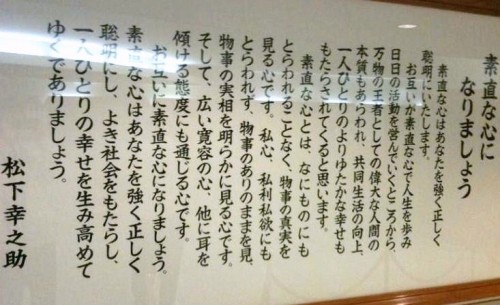 素直な心に
なりましょう
素直な心はあなたを強く正しく
聡明にいたします。
お互いが素直な心で人生を歩み
日日の活動を営んでいくところから、
万物の王者としての偉大な人間の
本質もあらわれ、共同生活の向上、
一人ひとりのよりゆたかな幸せも
もたらされてくると思います。
素直な心とは、なにものにも
とらわれることなく、物事の真実を
見る心です。私心、私利私欲にも
とらわれず、物事のありのままを見、
物事の実相を明らかに見る心です。
そして、広い寛容の心、他に耳を
傾ける態度にも通じる心です。
お互いに素直な心になりましょう。
素直な心はあなたを強く正しく
聡明にし、よき社会をもたらし、
一人ひとりの幸せを生み高めて
ゆくでありましょう。
松下幸之助